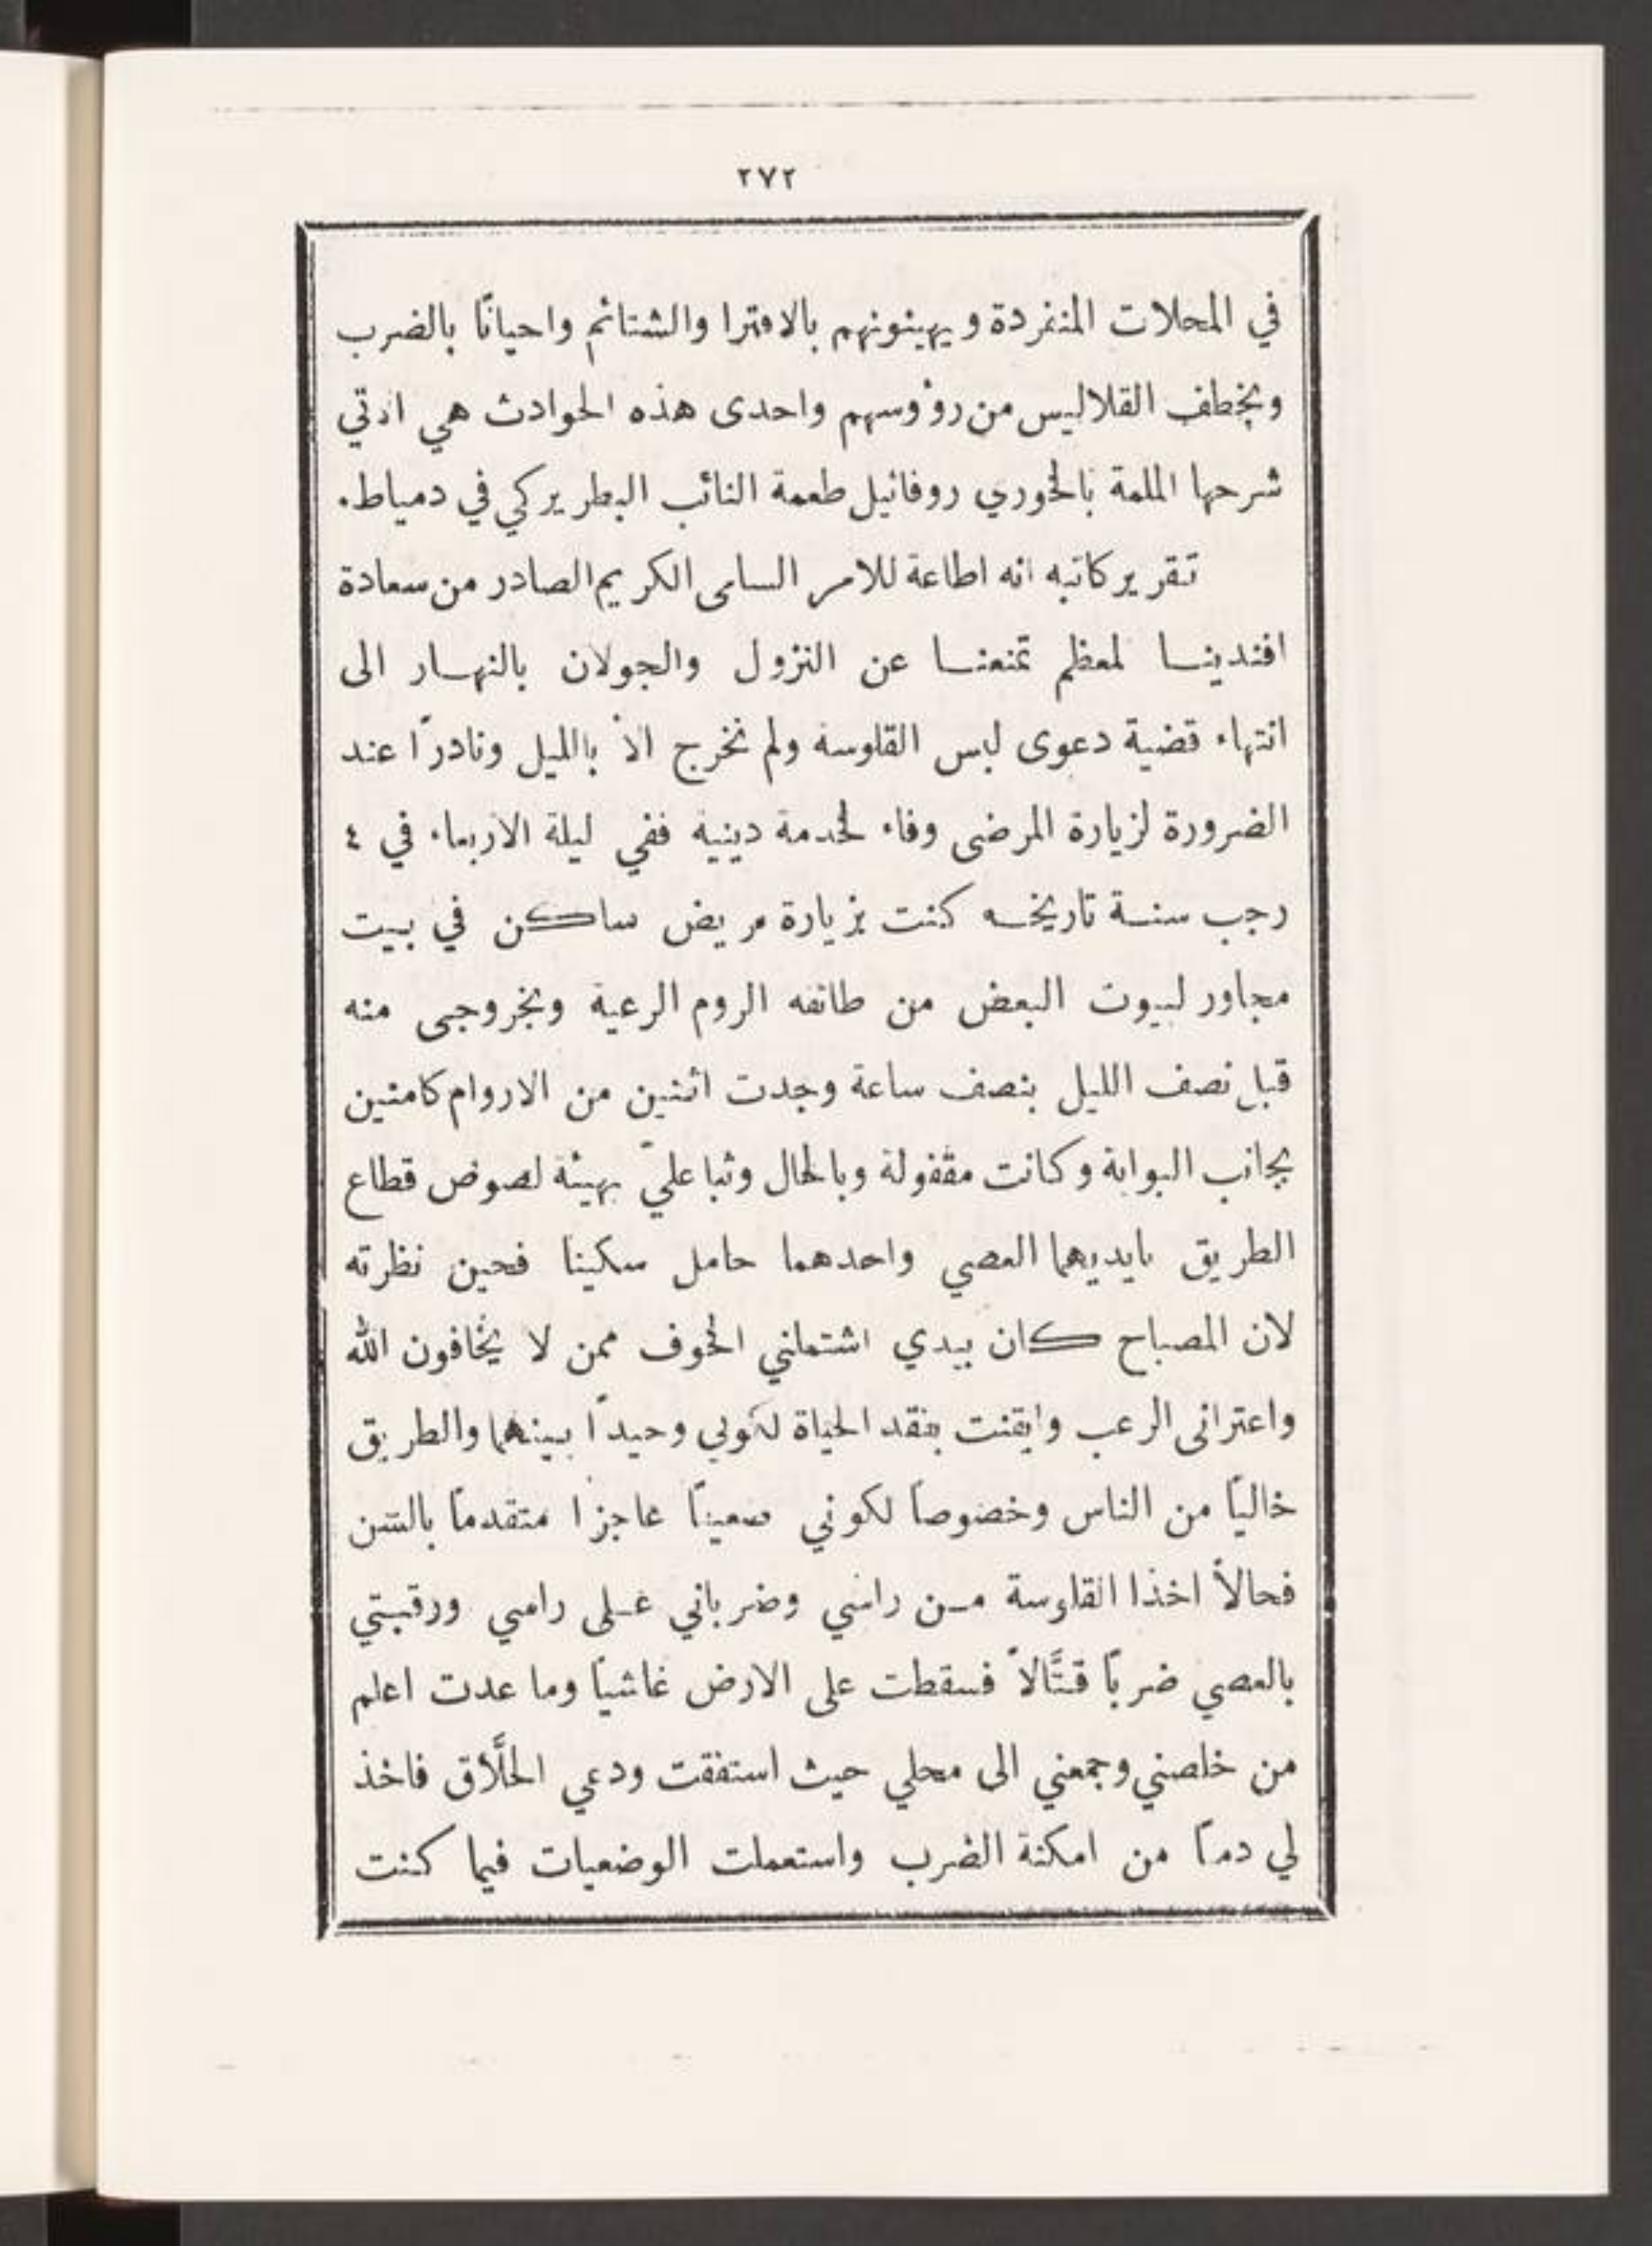 ٢٧٢
في المحلات المنفردة ويهينونهم بالافترا والشتائم واحيانًا بالضرب
وبخطف القلاليس من روُوسهم واحدى هذه الحوادث هي الاتي
شرحها الملمة بالخوري روفائيل طعمة النائب البطريركي في دمياط.
تقرير كاتبه انه اطاعة للامر السامي الكريم الصادر من سعادة
افندينا لمعظم تمنعنا عن النزول والجولان بالنهار الى
انتهاء قضية دعوى لبس القلوسة ولم نخرج الا بالليل ونادرًا عند
الضرورة لزيارة المرضى وفاء لخدمة دينية ففي ليلة الاربعاء في ٤
رجب سنة تاريخه كنت بزيارة مريض ساكن في بيت
مجاور لبيوت البعض من طائفه الروم الرعية وبخروجي منه
قبل نصف الليل بنصف ساعة وجدت اثنين من الاروام كامنين
بجانب البوابة وكانت مقفولة وبالحال وثبا عليّ بهيئة لصوص قطاع
الطريق بايديهما العصي واحدهما حامل سكينا فحين نظرته
لان المصباح كان بيدي اشتملني الخوف ممن لا يخافون الله
واعتراني الرعب وايقنت بفقد الحياة لكوني وحيدًا بينهما والطريق
خاليًا من الناس وخصوصًا لكوني ضعيفًا عاجزا متقدمًا بالسن
فحالاً اخذا القلوسة من راسي وضرباني على راسي ورقبتي
بالعصي ضربًا قتَّالاً فسقطت على الارض غاشيًا وما عدت اعلم
من خلصني وجمعني الى محلي حيث استفقت ودعي الحلَّاق فاخذ
لي دمًا من امكنة الضرب واستعملت الوضعيات فيما كنت